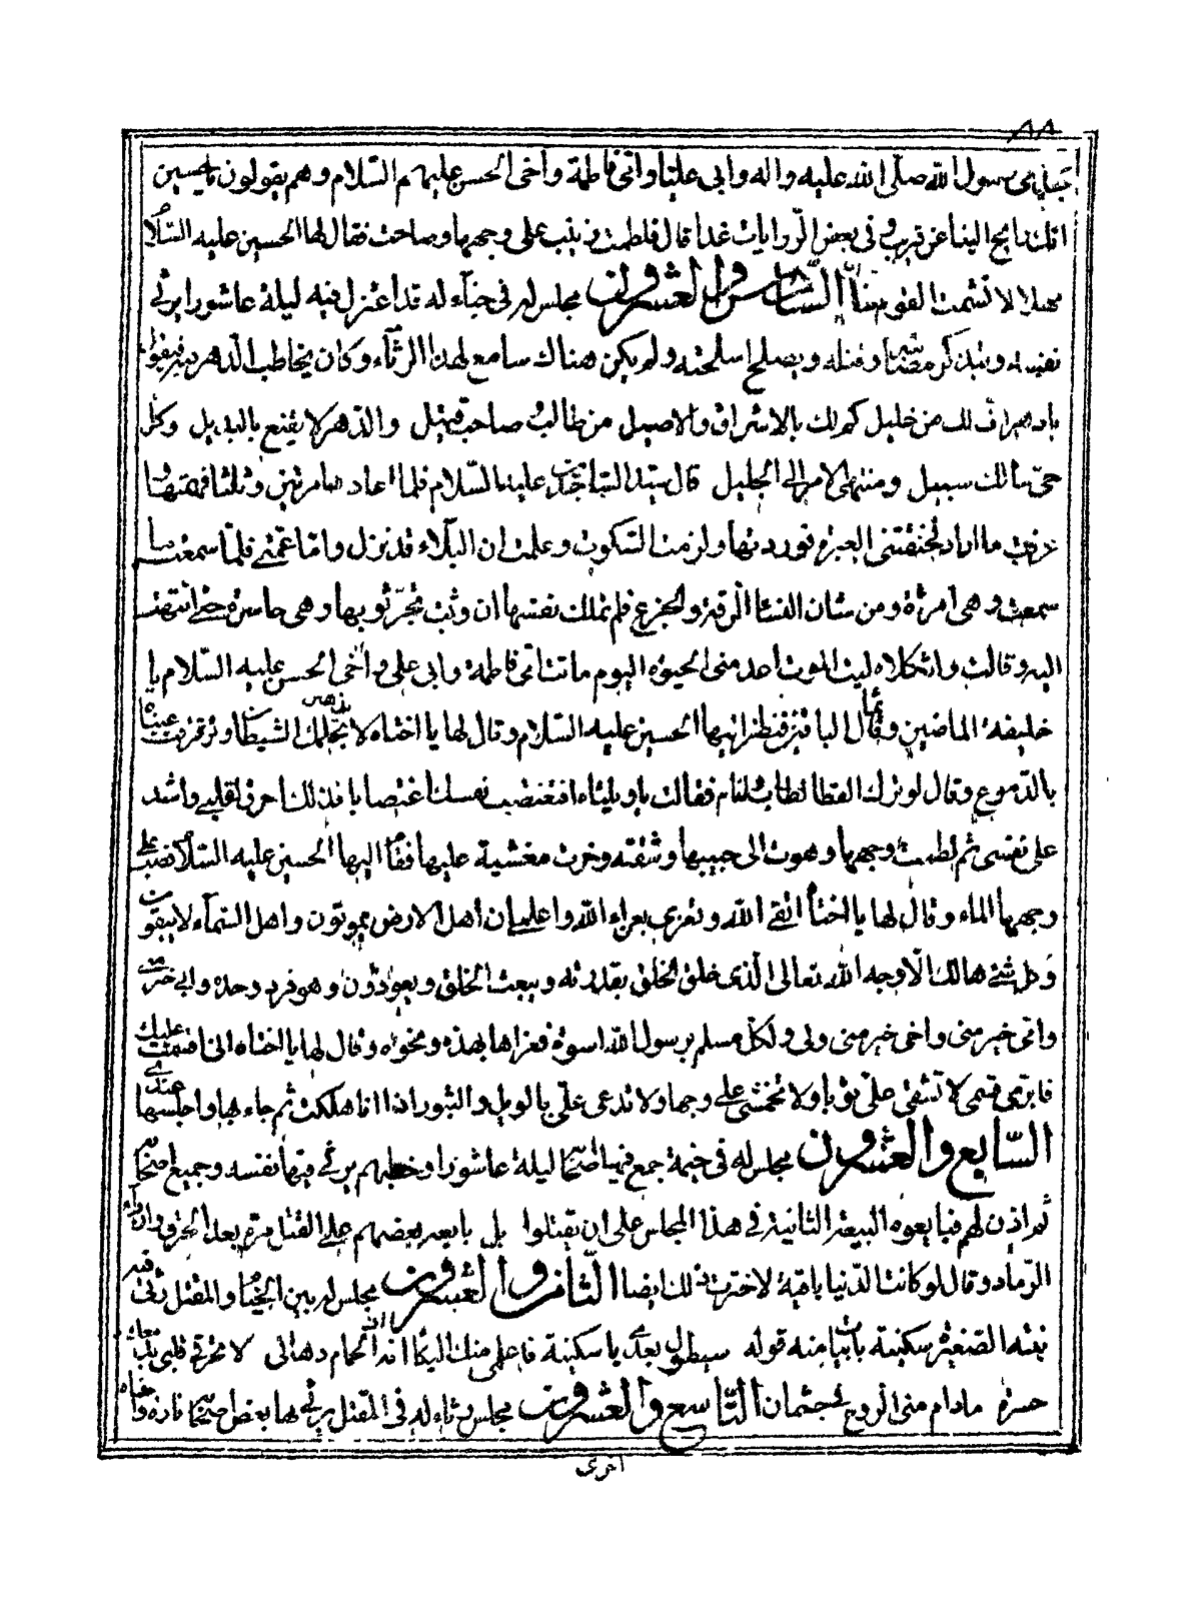 ٨٨
جدي رسول الله صلى الله عليه واله وابي عليا وامي فاطمة واخي الحسن عليهم السلام وهم يقولون يا حسين
انك رايح الينا عن قريب وفي بعض الروايات غدا قال فلطمت زينب على وجهها وصاحت فقال لها الحسين عليه السلام
مهلا لا تشمت القوم بنا السادس والعشرون مجلس له في خباء له قد اعتزل فيه ليلة عاشورا يرثي
نفسه ويتذكر مصرعه وقتله ويصلح اسلحته ولم يكن هناك سامع لهذا الرثاء وكان يخاطب الدهر فيقول
يا دهر اف لك من خليل كم لك بالاشراق والاصيل من طالب وصاحب قتيل والدهر لا يقنع بالبديل وكل
حي سالك سبيل ومنتهى الامر الى الجليل قال سيد الساجدين عليه السلام فلما اعادها مرتين وثلثا فهمتها
عرفت ما اراد فخنقتني العبرة فرددتها ولزمت السكوت وعلمت ان البلاء قد نزل واما عمتي فلما سمعت ما
سمعت وهي امرئة ومن شان النساء الرقة والجزع فلم تملك نفسها ان وثبت تجر ثوبها وهي حاسرة حتى انتهت
اليه وقالت واثكلاه ليت الموت اعدمني الحيوة اليوم ماتت امي فاطمة وابي علي واخي الحسن عليه السلام يا
خليفة الماضين وثمال الباقين فنظر اليها الحسين عليه السلام وقال لها يا اختاه لا يذهبن بحلمك الشيطان وترقرقت عيناه
بالدموع وقال لو ترك القطا لطاب لنام فقالت يا ويلتاه افتغتصب نفسك اغتصابا فذلك احرق لقلبي واشد
على نفسي ثم لطمت وجهها وهوت الى جيبها وشقته وخرت مغشية عليها فقام اليها الحسين عليه السلام فصب على
وجهها الماء وقال لها يا اختاه اتقي الله وتعزي بعزاء الله واعلمي ان اهل الارض يموتون واهل السماء لا يبقون
وكل شئ هالك الا وجه الله تعالى الذي خلق الخلق بقدرته ويبعث الخلق ويعودون وهو فرد وحده وابي خير مني
وامي خير مني واخي خير مني ولي ولكل مسلم برسول الله اسوة فعزاها بهذه ونحوه وقال لها يا اختاه اني اقسمت عليك
فابري قسمي لا تشقي علي ثوبا ولا تخمشي علي وجها ولا تدعي علي بالويل والثبور اذا انا هلكت ثم جاء بها واجلسها عندي
السابع والعشرون مجلس له في خيمة جمع فيها اصحابه ليلة عاشورا وخطبهم يرثي فيها نفسه وجميع اصحابه
ثم اذن لهم فبايعوه البيعة الثانية في هذا المجلس على ان يقتلوا بل بايعه بعضهم على القتل مرة بعد الحرق وان
الرماد وقال لو كانت الدنيا باقية لاخترت ذلك ايضا الثامن والعشرون مجلس له بين الخيام والمقتل رثى فيه
بنته الصغيرة سكينة بابيات منه قوله سيطول بعدي يا سكينة فاعلمي منك البكاء اذا الحمام دهاني لا تحرقي قلبي بدمعك
حسرة ما دام مني الروح في جثماني التاسع والعشرون مجلس رثاء له في المقتل يرثي بها بعض اصحابه تارة واهله
اخرى